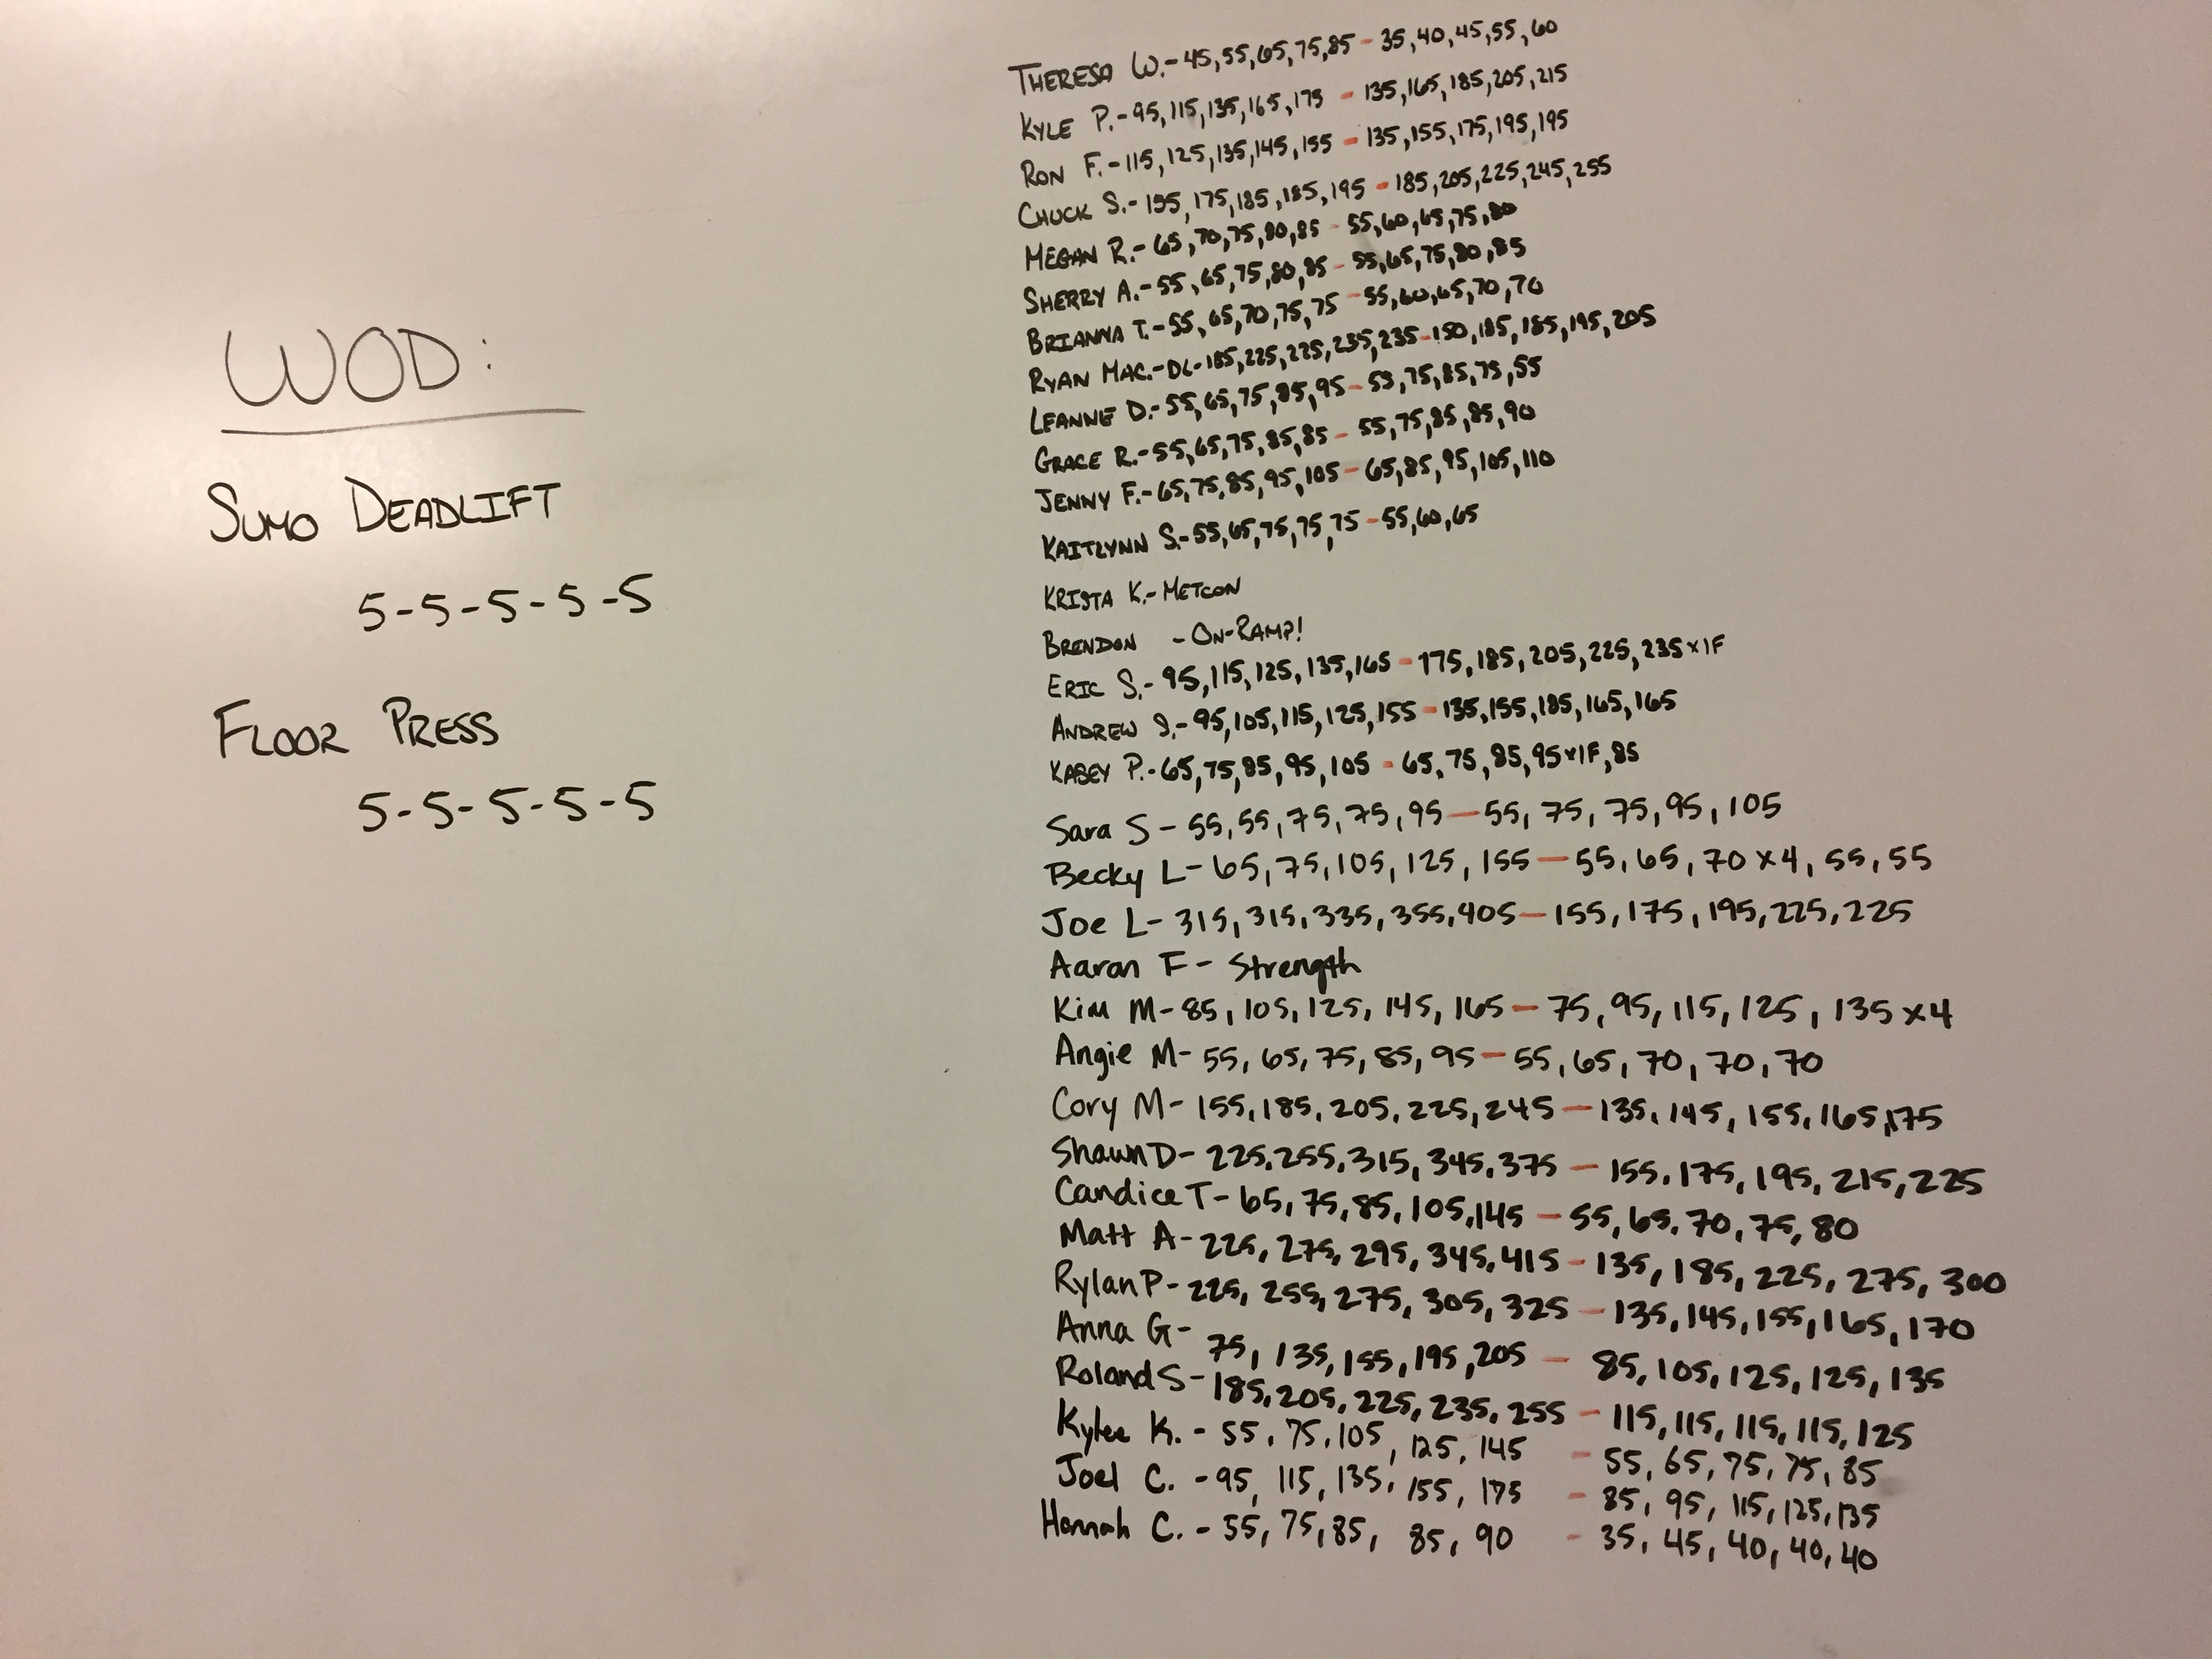 WOD:
SUMO DEADLIFT
5-5-5-5-5
FLOOR PRESS
5-5-5-5-5
THERESA W.-45,55,65,75,85-35,40,45,55,60
KYLE P.-95,115,135,165,175-135,165,185,205,215
RON F.-115,125,135,145,155-135,155,175,195,195
CHUCK S.-155,175,185,185,195-185,205,225,245,255
MEGAN R.-65,70,75,80,85-55,60,65,75,80
SHERRY A.-55,65,75,80,85-55,65,75,80,85
BRIANNA T.-55,65,70,75,75-55,60,65,70,70
RYAN MAC.-DL-185,225,225,235,235-150,185,185,195,205
LEANNE D.-55,65,75,85,95-55,75,85,75,55
GRACE R.-55,65,75,85,85-55,75,85,85,90
JENNY F.-65,75,85,95,105-65,85,95,105,110
KAITLYNN S.-55,65,75,75,75-55,60,65
KRISTA K.-METCON
BRENDON -ON-RAMP!
ERIC S.-95,115,125,135,165-175,185,205,225,235x1F
ANDREW S.-95,105,115,125,155-135,155,185,165,165
KASEY P.-65,75,85,95,105-65,75,85,95x1F,85
Sara S-55,55,75,75,95-55,75,75,95,105
Becky L-65,75,105,125,155-55,65,70x4,55,55
Joe L-315,315,335,355,405-155,175,195,225,225
Aaron F-Strength
Kim M-85,105,125,145,165-75,95,115,125,135x4
Angie M-55,65,75,85,95-55,65,70,70,70
Cory M-155,185,205,225,245-135,145,155,165,175
Shawn D-225,255,315,345,375-155,175,195,215,225
Candice T-65,75,85,105,145-55,65,70,75,80
Matt A-225,275,295,345,415-135,185,225,275,300
Rylan P-225,255,275,305,325-135,145,155,165,170
Anna G-75,135,155,195,205-85,105,125,125,135
Roland S-185,205,225,235,255-115,115,115,115,125
Kylee K.-55,75,105,125,145-55,65,75,75,85
Joel C.-95,115,135,155,175-85,95,115,125,135
Hannah C.-55,75,85,85,90-35,45,40,40,40